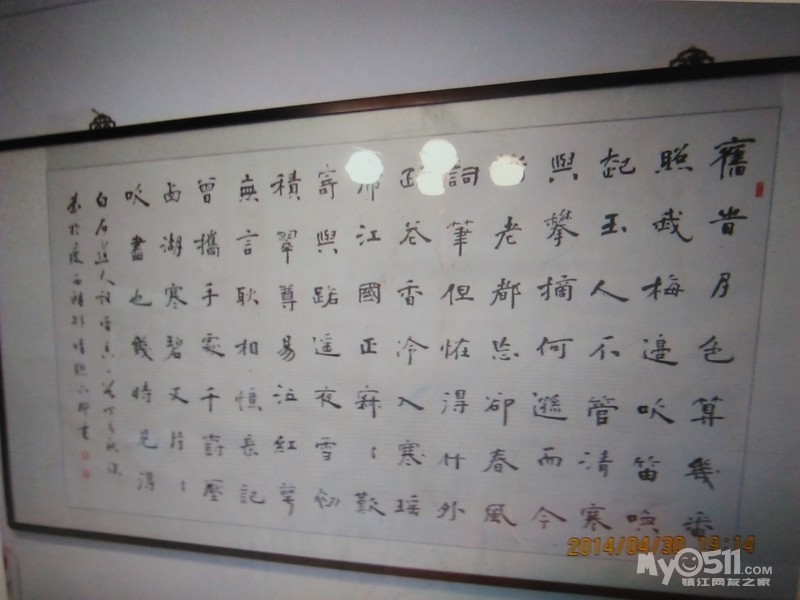 舊旹月色算幾番
照我梅邊吹笛喚
起玉人不管清寒
與攀摘何遜而今
漸老都忘卻春風
詞筆但恠得竹外
疏花香冷入寒瑤
席江國正寂〻歎
寄與路遥夜雪初
積翠尊易泣紅萼
無言耿相憶長記
曾攜手處千樹壓
西湖寒碧又片〻
吹盡也幾時見得
白石道人詞暗香一首丁亥秋
於
2014/04/30 19:14
My0511.COM
镇江网友之家